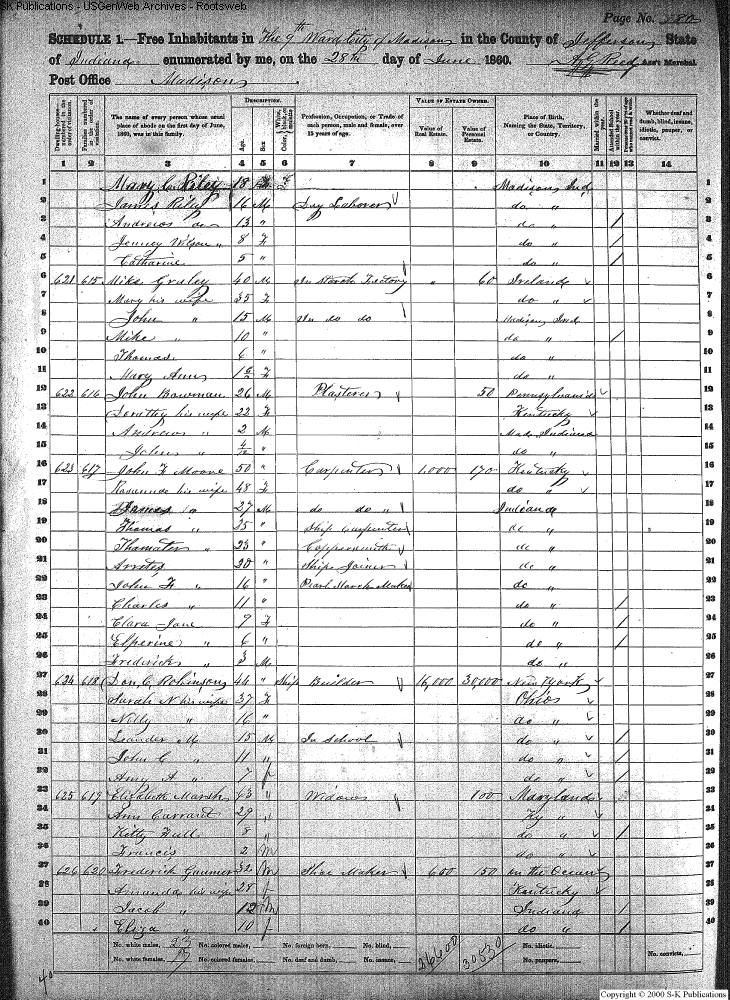 S-K Publications - USGenWeb Archives - Rootsweb
Page No. 282
SCHEDULE 1.—Free Inhabitants in The 9th Ward City of Madison in the County of Jefferson State
of Indiana enumerated by me, on the 28th day of June 1860. Ass't Marshal
Post Office Madison
DESCRIPTION. VALUE OF ESTATE OWNED.
Dwelling-houses—numbered in the order of visitation. Families numbered in the order of visitation. The name of every person whose usual place of abode on the first day of June, 1860, was in this family. Age. Sex. Color, White, black, or mulatto. Profession, Occupation, or Trade of each person, male and female, over 15 years of age. Value of Real Estate. Value of Personal Estate. Place of Birth, Naming the State, Territory, or Country. Married within the year. Attended School within the year. Whether deaf and dumb, blind, insane, idiotic, pauper, or convict.
1 2 3 4 5 6 7 8 9 10 11 12 13 14
1 Mary C Riley 18 F Madison Ind 1
2 James Riley 16 M Day Laborer do " 2
3 Andrew do 13 " do " / 3
4 Jenney Wilson " 8 F do " / 4
5 Catharine 5 " do " / 5
6 621 615 Mike 40 M In Starch Factory " 60 Ireland 6
7 Mary his wife 35 F do " 7
8 John " 15 M In do do Madison Ind 8
9 Mike " 10 " do " / 9
10 Thomas 6 " do " 10
11 Mary Ann F do " 11
12 622 616 John Bowman 26 M Plasterer 50 Pennsylvania 12
13 his wife 22 F Kentucky 13
14 Andrew " 2 M Indiana 14
15 John " 4/12 " do " 15
16 623 617 John F Moore 50 " Carpenter 1,000 170 Kentucky 16
17 his wife 48 F do " 17
18 James 27 M do do " Indiana 18
19 Thomas " 25 " Ship Carpenter do " 19
20 " 23 " Coppersmith do " 20
21 20 " Ship Joiner do " 21
22 John F " 16 " Pearl Starch Maker do " 22
23 Charles " 11 " do " / 23
24 Clara Jane 9 F do " / 24
25 " 6 " do " / 25
26 Frederick " 3 M do " 26
27 624 618 Don C Robinson 44 " Ship Builder 16,000 30,000 New York 27
28 Sarah N his wife 37 F Ohio 28
29 Nelly " 16 " do " 29
30 Leander M 15 M In School do " / 30
31 John C " 11 " do " / 31
32 Amy A " 7 f do " / 32
33 625 619 Elizabeth Marsh 63 " Widow 100 Maryland 33
34 Ann 29 " Ky " 34
35 Kitty Hall 8 " do " / 35
36 Francis 2 M do " 36
37 626 620 Frederick 32 M Shoe Maker 600 150 on the Ocean 37
38 Amanda his wife 28 f Kentucky 38
39 Jacob " 12 M Indiana / 39
40 Eliza " 10 f do " / 40
No. white males, 23 No. colored males, No. foreign born, No. blind, 26600 30830 No. idiotic,
No. white females, 17 No. colored females, No. deaf and dumb, No. insane, No. paupers, No. convicts,
Copyright © 2000 S-K Publications